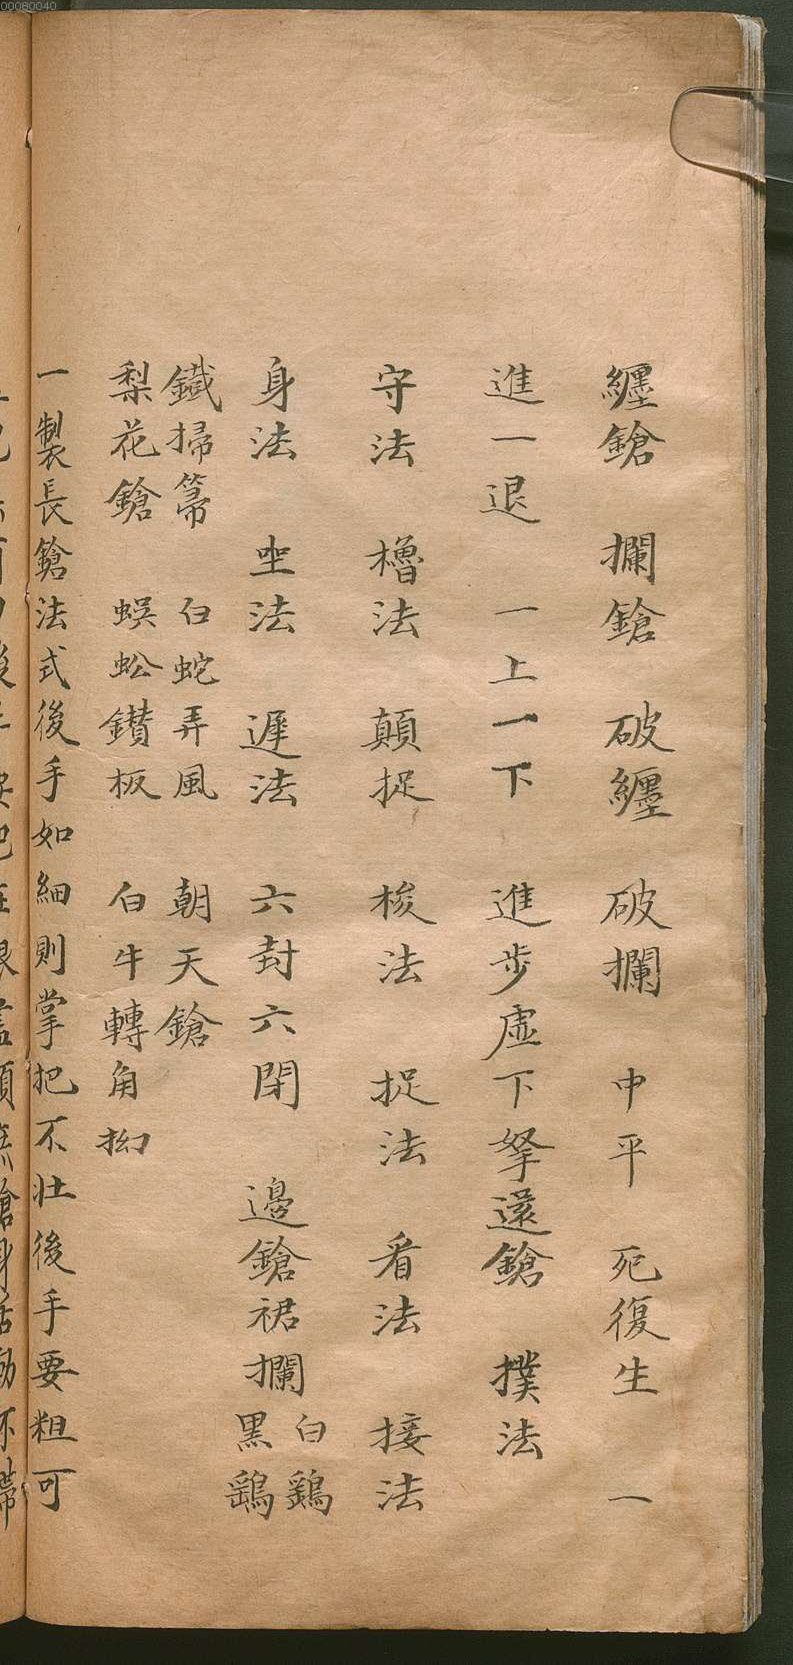 00080040
纒鎗 攔鎗 破纒 破攔 中平 死復生 一
進一退 一上一下 進步虛下拏還鎗 撲法
守法 櫓法 顛捉 梭法 捉法 看法 接法
身法 坐法 遲法 六封六閉 邊鎗裙攔 白鷄
黑鷂
鐵掃箒 白蛇弄風 朝天鎗
梨花鎗 蜈蚣鑚板 白牛轉角拗
一製長鎗法式後手如細則掌把不壯後手要粗可